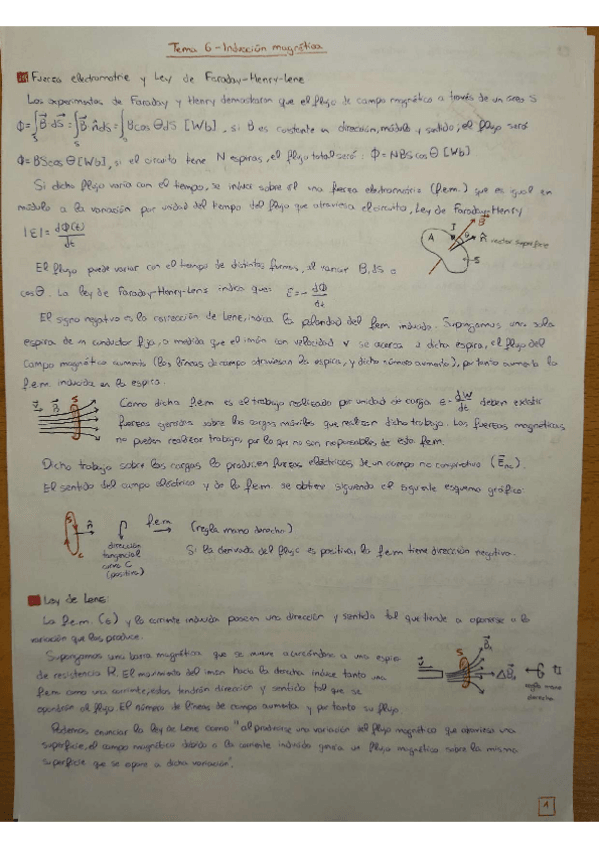 Tema 6 - Inducción magnética
Fuerza electromotriz y Ley de Faraday-Henry-Lenz
Los experimentos de Faraday y Henry demostraron que el flujo de campo magnético a través de un área S
Φ = ∫ B⃗ · dS⃗ = ∫ B⃗ · n̂ dS = ∫ B cos θ dS [Wb], si B es constante en dirección, módulo y sentido, el flujo será
Φ = BS cos θ [Wb], si el circuito tiene N espiras, el flujo total será: Φ = NBS cos θ [Wb]
Si dicho flujo varía con el tiempo, se induce sobre él una fuerza electromotriz (f.e.m.) que es igual en
módulo a la variación por unidad del tiempo del flujo que atraviesa el circuito, Ley de Faraday-Henry
|ε| = dΦ(t)/dt
A I B⃗ θ n̂ vector superficie S
El flujo puede variar con el tiempo de distintas formas, al variar B, dS o
cos θ. La ley de Faraday-Henry-Lenz indica que: ε = - dΦ/dt
El signo negativo es la corrección de Lenz, indica la polaridad del fem inducida. Supongamos una sola
espira de un conductor fijo, a medida que el imán con velocidad v se acerca a dicha espira, el flujo del
campo magnético aumenta (las líneas de campo atraviesan la espira, y dicho número aumenta), por tanto aumenta la
f.e.m. inducida en la espira.
B⃗ S
Como dicha f.e.m. es el trabajo realizado por unidad de carga ε = dW/dt deben existir
fuerzas generadas sobre las cargas móviles que realizan dicho trabajo. Las fuerzas magnéticas
no pueden realizar trabajo, por lo que no son responsables de esta fem.
Dicho trabajo sobre las cargas lo producen fuerzas eléctricas de un campo no conservativo (E⃗nc).
El sentido del campo eléctrico y de la f.e.m. se obtiene siguiendo el siguiente esquema gráfico:
S n̂ C
dirección tangencial curva C (positiva)
f.e.m (regla mano derecha)
Si la derivada del flujo es positiva, la f.e.m tiene dirección negativa.
Ley de Lenz:
La f.e.m. (ε) y la corriente inducida poseen una dirección y sentido tal que tiende a oponerse a la
variación que las produce.
Supongamos una barra magnética que se mueve acercándose a una espira
de resistencia R. El movimiento del imán hacia la derecha induce tanto una
fem como una corriente, estas tendrán dirección y sentido tal que se
opondrán al flujo. El número de líneas de campo aumenta y por tanto su flujo.
S regla mano derecha
Podemos enunciar la ley de Lenz como "al producirse una variación del flujo magnético que atraviesa una
superficie, el campo magnético debido a la corriente inducida genera un flujo magnético sobre la misma
superficie que se opone a dicha variación".
1